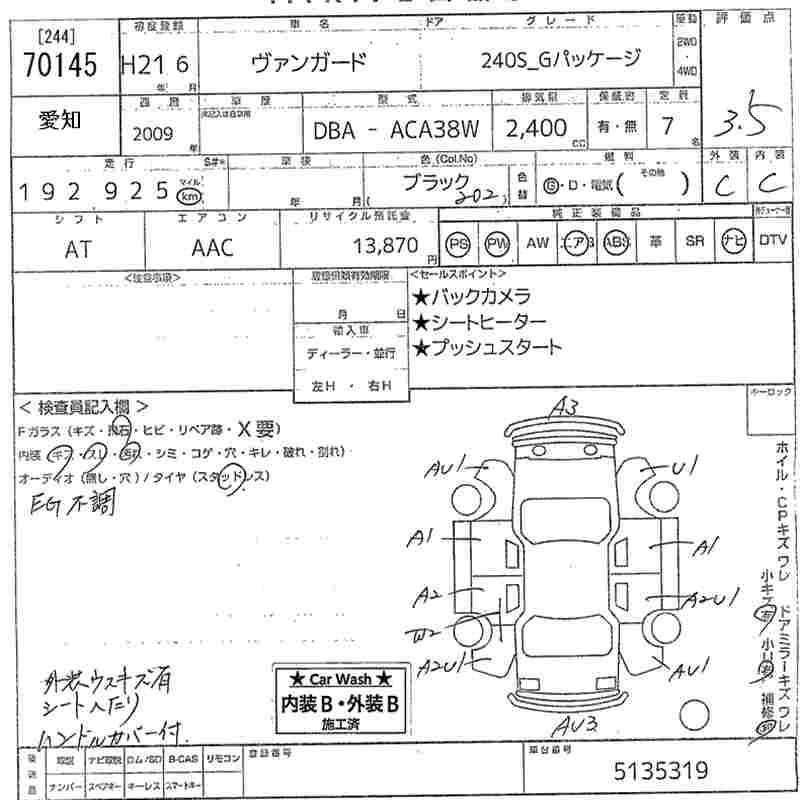 [244]
70145
初度登録
車名
ドア
グレード
駆動
評価点
H21 6
年 月
ヴァンガード
240S_Gパッケージ
2WD
・
4WD
3.5
愛知
西暦
2009
年
車歴
型式
DBA - ACA38W
排気量
2,400
CC
保証書
有・無
定員
7
名
走行
S#*
車検
色 (Col.No)
燃料
外装
内装
192,925
マイル
km
年 月
ブラック
( 202 )
色替
G・D・電気(
その他
)
C
C
シフト
エアコン
リサイクル預託金
純正装備品
AT
AAC
13,870
円
PS
PW
AW
エアB
ABS
革
SR
ナビ
DTV
<注意事項>
月 日
輸入車
ディーラー・並行
左H ・ 右H
<セールスポイント>
★バックカメラ
★シートヒーター
★プッシュスタート
キーロック
< 検査員記入欄 >
Fガラス (キズ・飛石・ヒビ・リペア跡・X要)
内装 (キズ・スレ・汚れ・シミ・コゲ・穴・キレ・破れ・割れ)
オーディオ (無し・穴) / タイヤ (スタッドレス)
EG不調
A3
AU1
U1
A1
A1
A2
A2U1
W2
A2U1
AU1
AU3
ホイル・CPキズワレ ドアミラーキズワレ
小キズ有 小凹有 補修跡
外装ウスキズ有
シートへたり
ハンドルカバー付
★ Car Wash ★
内装B・外装B
施工済
後送品
取説
ナビ取説
ロム/SD
B-CAS
リモコン
ナンバー
スペアキー
キーレス
スマートキー
登録番号
車台番号
5135319